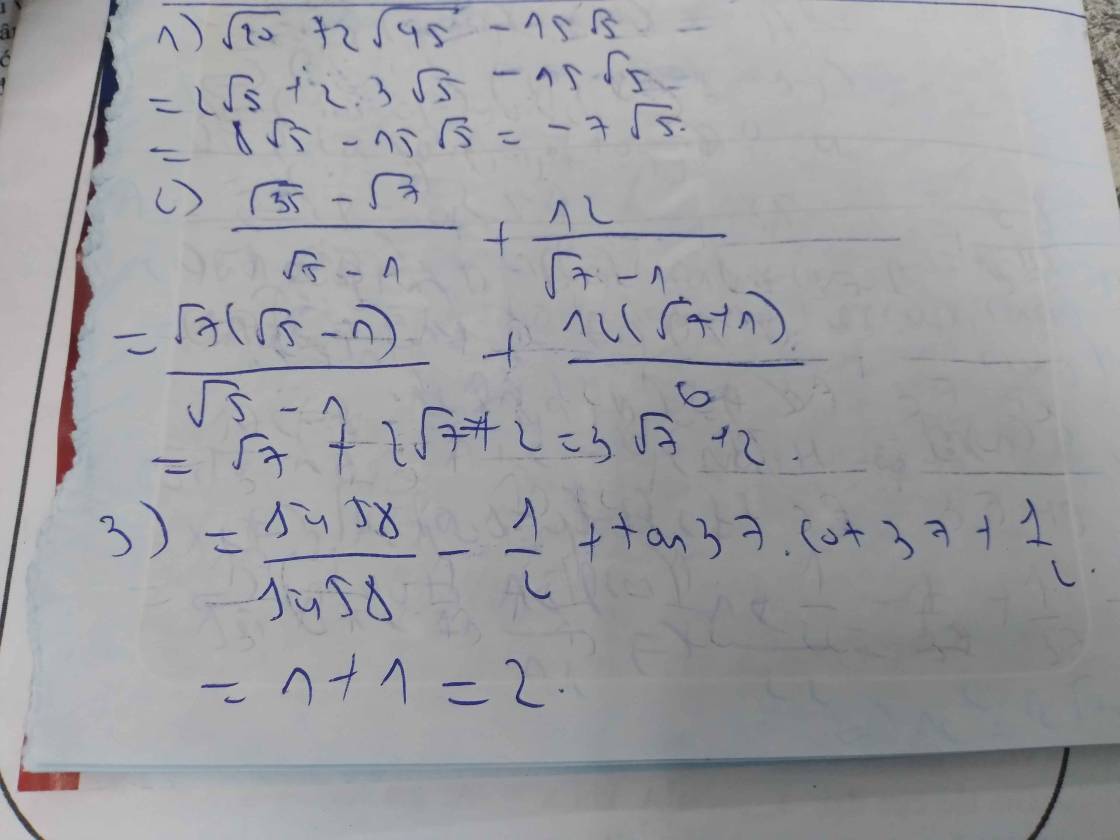 1) √20 + 2√45 - 15√5
= 2√5 + 2.3√5 - 15√5.
= 8√5 - 15√5 = -7√5.
2) (√35 - √7)/(√5 - 1) + 12/(√7 - 1)
= √7(√5 - 1)/(√5 - 1) + 12(√7+1)/6
= √7 + 2√7 + 2 = 3√7 + 2.
3) = sin58/sin58 - 1/2 + tan37.cot37 + 1/2.
= 1 + 1 = 2.